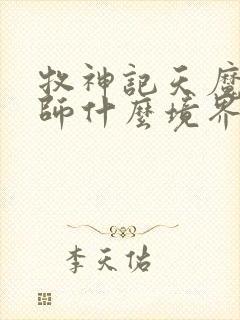 牧神記天魔
師什麼境界
李天佑